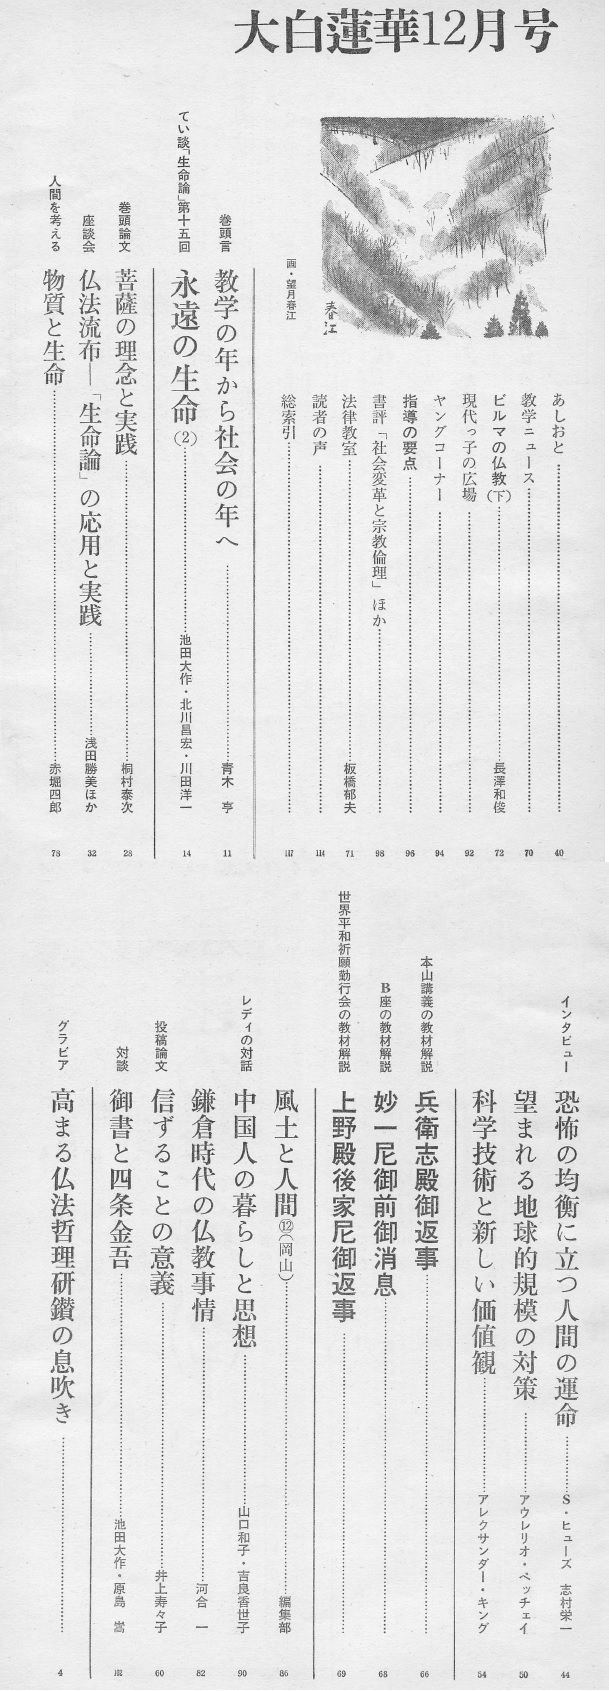 大白蓮華12月号
画・望月春江
春江
あしおと 40
教学ニュース 70
ビルマの仏教(下) 長澤和俊 72
現代っ子の広場 92
ヤングコーナー 94
指導の要点 96
書評「社会変革と宗教倫理」ほか 98
法律教室 板橋郁夫 71
読者の声 114
総索引 117
巻頭言 教学の年から社会の年へ 青木 亨 11
てい談「生命論」第十五回 永遠の生命(2) 池田大作・北川昌宏・川田洋一 14
巻頭論文 菩薩の理念と実践 桐村泰次 28
座談会 仏法流布―「生命論」の応用と実践 浅田勝美ほか 32
人間を考える 物質と生命 赤堀四郎 78
インタビュー 恐怖の均衡に立つ人間の運命 S・ヒューズ 志村栄一 44
望まれる地球的規模の対策 アウレリオ・ペッチェイ 50
科学技術と新しい価値観 アレクサンダー・キング 54
本山講義の教材解説 兵衛志殿御返事 66
B座の教材解説 妙一尼御前御消息 68
世界平和祈願勤行会の教材解説 上野殿後家尼御返事 69
風土と人間⑫(岡山) 編集部 86
レディの対話 中国人の暮らしと思想 山口和子・吉良香世子 90
鎌倉時代の仏教事情 河合 一 82
投稿論文 信ずることの意義 井上寿々子 60
対談 御書と四条金吾 池田大作・原島 嵩 102
グラビア 高まる仏法哲理研鑽の息吹き 4